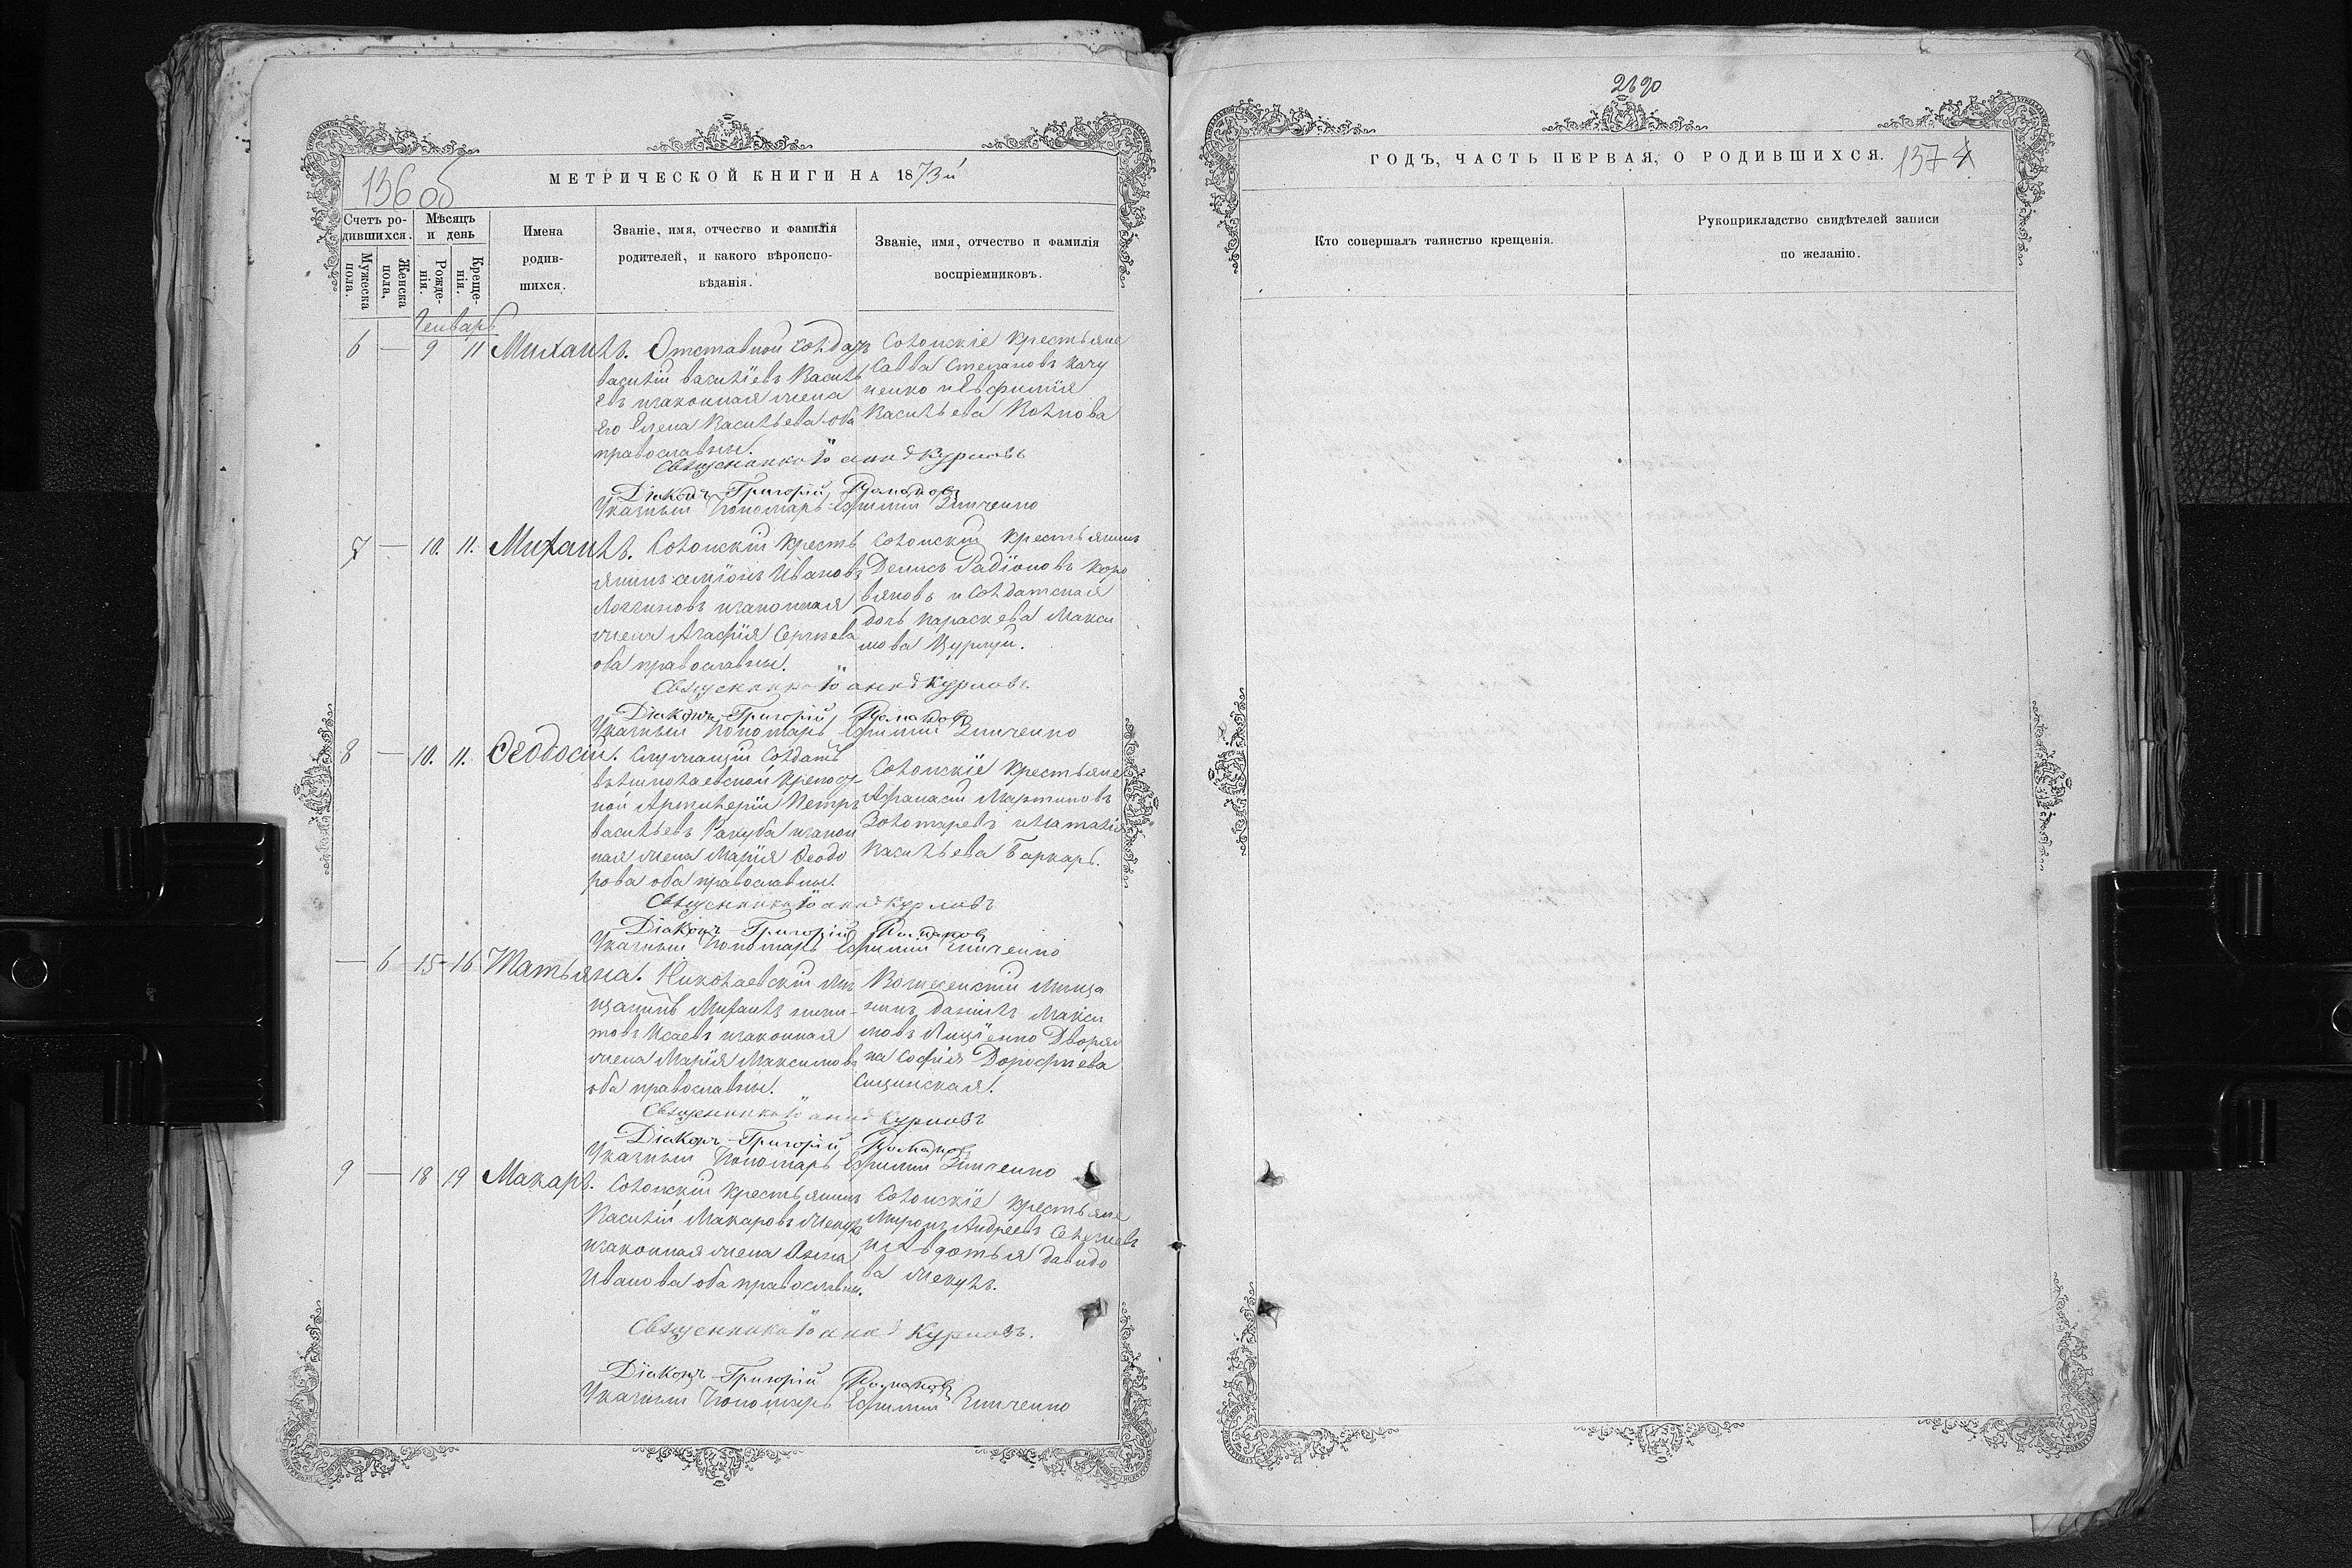 136 об
МЕТРИЧЕСКОЙ КНИГИ НА 1873й
Счетъ ро-
дившихся.
Мужеска
пола.
Женска
пола.
Мѣсяцъ
и день
Рожде-
нія.
Креще-
нія.
Имена
родив-
шихся.
Званіе, имя, отчество и фамилія
родителей, и какого вѣроиспо-
вѣданія.
Званіе, имя, отчество и фамилія
воспріемниковъ.
Генварь
6 — 9 11 Михаилъ.
Отставной Солдатъ
Василій Васильевъ Василь
евъ и законная жена
Его Елена Васильева оба
православны.
Солонскіе Крестьяне
Савва Степановъ
и Евфимія
Васильева
Священникъ Іоаннъ Курловъ
Діаконъ Григорій Романовъ
Указный Пономарь Ефимій Зинченко
7 — 10. 11. Михаилъ.
Солонскій Кресть
янинъ Симіонъ Ивановъ
Логгиновъ и законная
жена Агафія Сергѣева
оба православны.
Солонскій Крестьянинъ
Денисъ Радіоновъ Коро
вяковъ и Солдатская
дочь Параскева Макси
мова
Священникъ Іоаннъ Курловъ
Діаконъ Григорій Романовъ
Указный Пономарь Ефимій Зинченко
8 — 10. 11. Феодосій.
Служащій Солдатъ
въ Николаевской Крепост
ной Артилеріи Петръ
Васильевъ Ракуба и закон
ная жена Марія Феодо
рова оба православны.
Солонскіе Крестьяне
Афанасій Мартиновъ
Золотаревъ и Наталія
Васильева Баркарь.
Священникъ Іоаннъ Курловъ
Діаконъ Григорій Романовъ
Указный Пономарь Ефимій Зинченко
— 6 15 16 Татьяна.
Николаевскій Мѣ
щанинъ Михаилъ
Исаевъ и законная
жена Марія Максимова
оба православны.
Вознесенскій Мѣща
нинъ Даніилъ Макси
мовъ Дворян
ка Софія Дорофѣева
Священникъ Іоаннъ Курловъ
Діаконъ Григорій Романовъ
Указный Пономарь Ефимій Зинченко
9 — 18 19 Макаръ.
Солонскій Крестьянинъ
Василій Макаровъ
и законная жена Анна
Иванова оба православны.
Солонскіе Крестьяне
Миронъ Андреевъ
и Евдотья Давидо
ва
Священникъ Іоаннъ Курловъ.
Діаконъ Григорій Романовъ
Указный Пономарь Ефимій Зинченко
2890
ГОДЪ, ЧАСТЬ ПЕРВАЯ, О РОДИВШИХСЯ.
137
Кто совершалъ таинство крещенія.
Рукоприкладство свидѣтелей записи
по желанію.